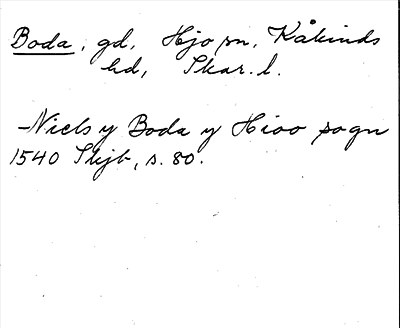 Boda, gd, Hjo sn, Kåkinds
hd, Skar. l.
-Niels y Boda y Hioo sogn
1540 Skjb, s. 80.